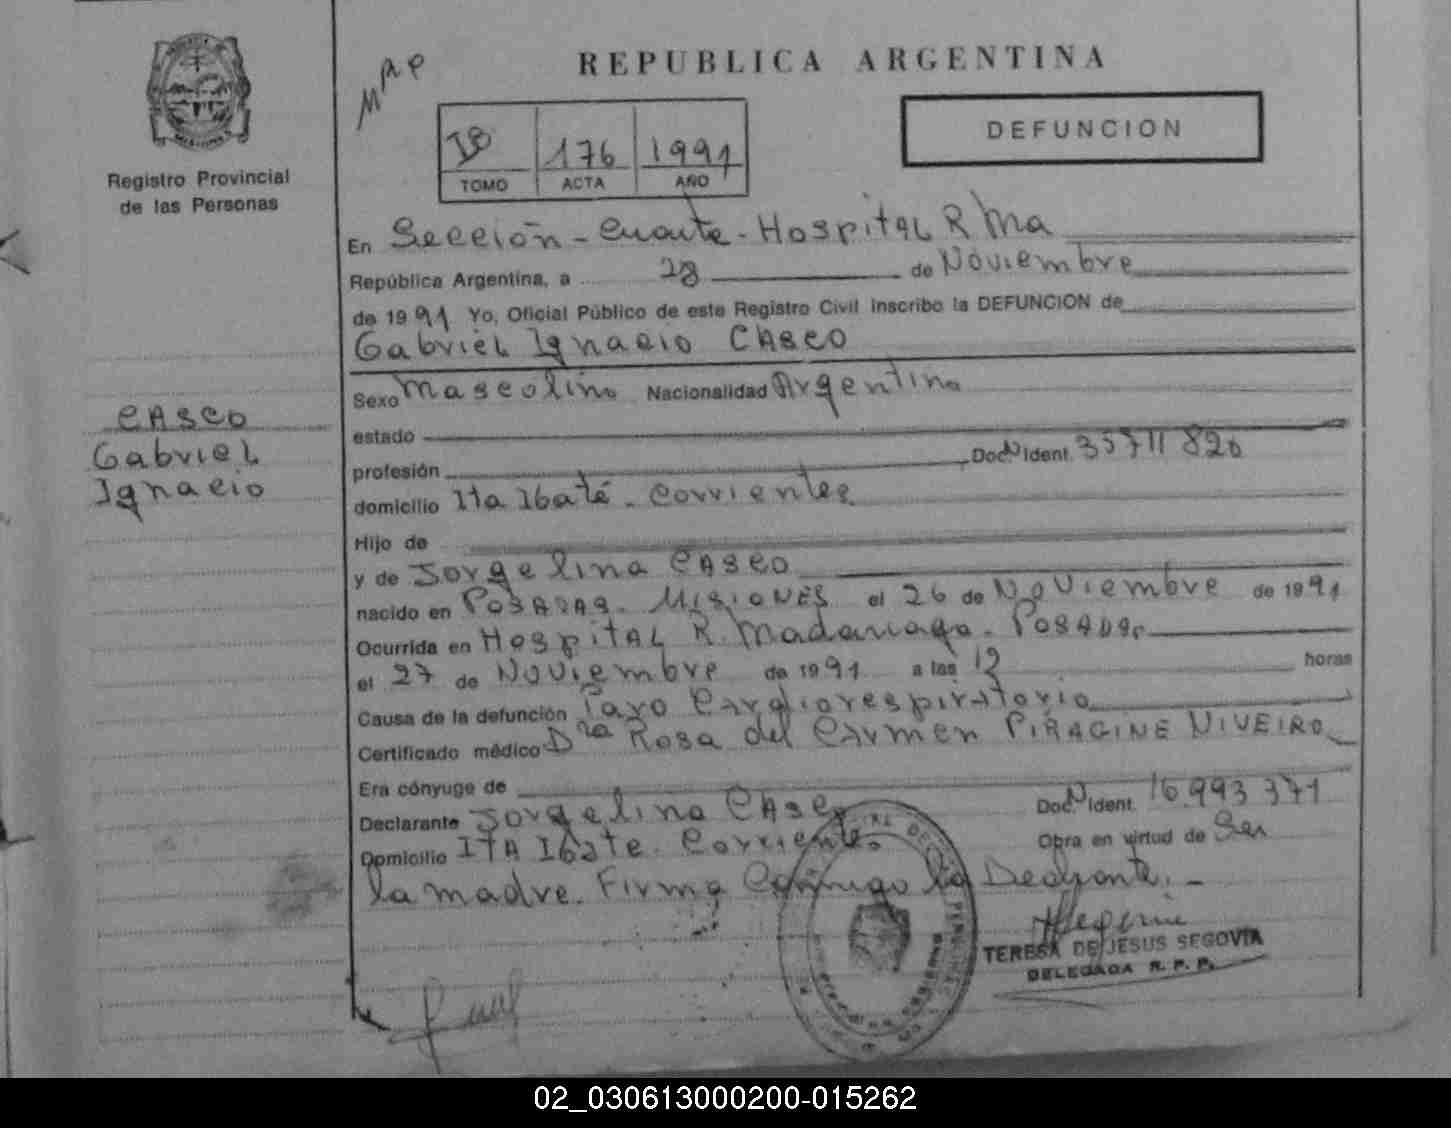 REPUBLICA ARGENTINA
DEFUNCION
176 1991
TOMO ACTA AÑO
Registro Provincial
de las Personas
En Sección - Cuarta - Hospital R Ma
República Argentina, a 28 de Noviembre
de 1991 Yo, Oficial Público de este Registro Civil inscribo la DEFUNCION de
Gabriel Ignacio CAsco
CASCO
Gabriel
Ignacio
Sexo Mascolino Nacionalidad Argentino
estado
profesión Doc. N Ident. 35711 826
domicilio Ita Ibaté - Corrientes
Hijo de
y de Jorgelina CAsco
nacido en POSADAS - MISIONES el 26 de Noviembre de 1991
Ocurrida en Hospital R. Madariaga - Posadas
el 27 de Noviembre de 1991 a las 12 horas
Causa de la defunción Paro Cardiorespiratorio
Certificado médico Dra Rosa del Carmen PIRAGINE NIVEIRO
Era cónyuge de
Declarante Jorgelina CAsco Doc. N Ident. 16.993 371
Domicilio ITA Ibate - Corrientes Obra en virtud de Ser
la madre. Firma Conmigo la Declarante. -
TERESA DE JESUS SEGOVIA
DELEGADA R. P. P.
02_030613000200-015262